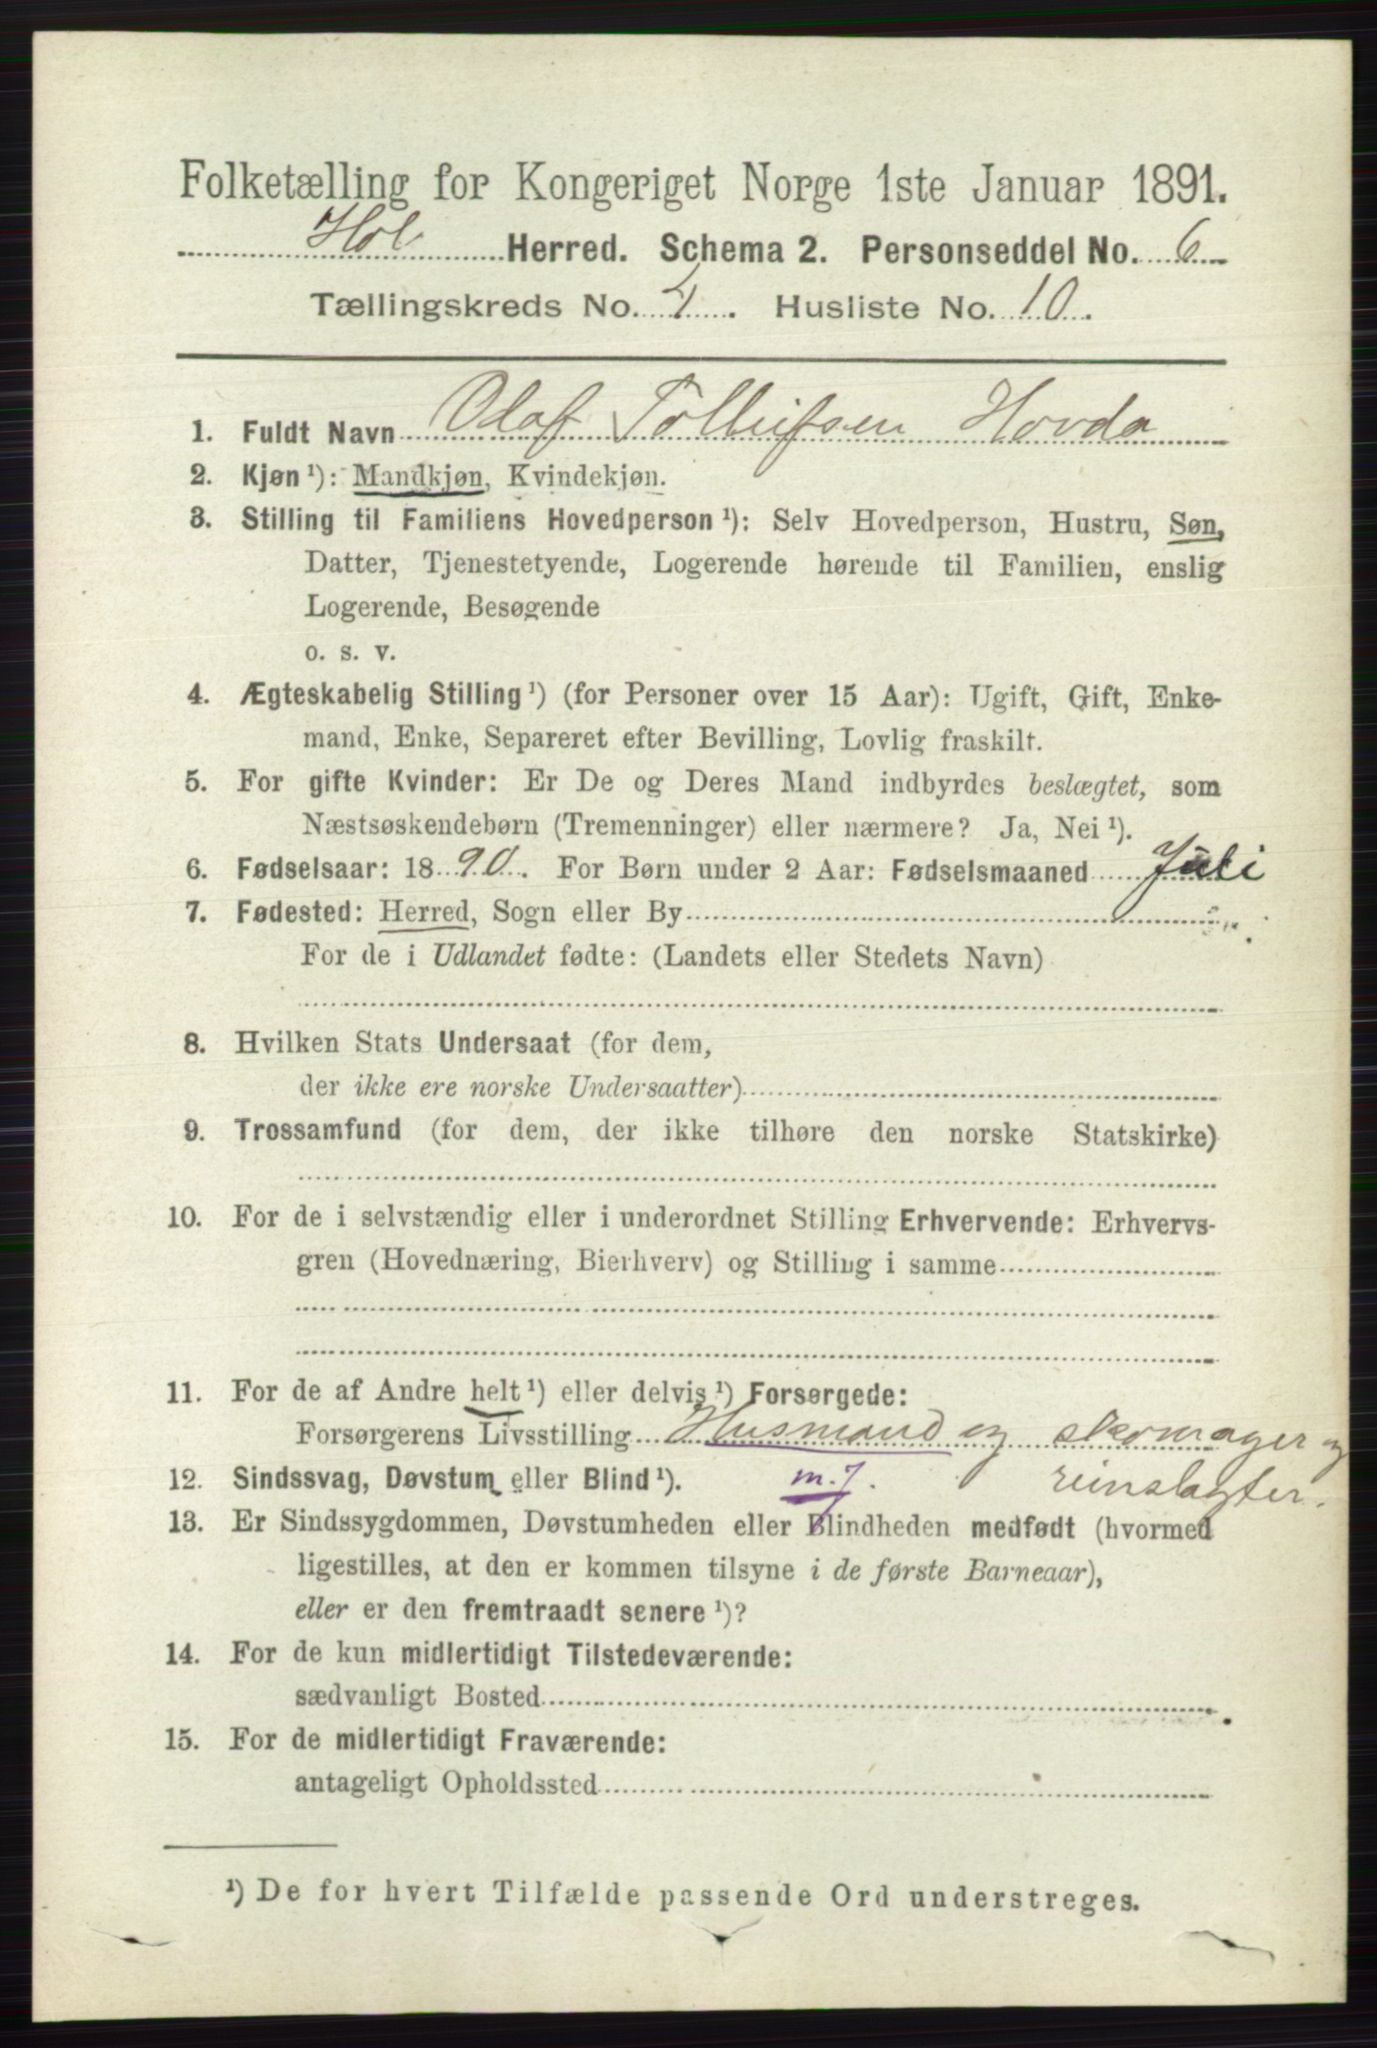 Folketælling for Kongeriget Norge 1ste Januar 1891.
Hol Herred. Schema 2. Personseddel No. 6
Tællingskreds No. 4. Husliste No. 10.
1. Fuldt Navn Olaf Tollefsen Hovda
2. Kjøn ¹): Mandkjøn, Kvindekjøn.
3. Stilling til Familiens Hovedperson ¹): Selv Hovedperson, Hustru, Søn,
Datter, Tjenestetyende, Logerende hørende til Familien, enslig
Logerende, Besøgende
o. s. v.
4. Ægteskabelig Stilling ¹) (for Personer over 15 Aar): Ugift, Gift, Enke-
mand, Enke, Separeret efter Bevilling, Lovlig fraskilt.
5. For gifte Kvinder: Er De og Deres Mand indbyrdes beslægtet, som
Næstsøskendebørn (Tremenninger) eller nærmere? Ja, Nei ¹).
6. Fødselsaar: 1890. For Børn under 2 Aar: Fødselsmaaned Juli
7. Fødested: Herred, Sogn eller By
For de i Udlandet fødte: (Landets eller Stedets Navn)
8. Hvilken Stats Undersaat (for dem,
der ikke ere norske Undersaatter)
9. Trossamfund (for dem, der ikke tilhøre den norske Statskirke)
10. For de i selvstændig eller i underordnet Stilling Erhvervende: Erhvervs-
gren (Hovednæring, Bierhverv) og Stilling i samme
11. For de af Andre helt ¹) eller delvis ¹) Forsørgede:
Forsørgerens Livsstilling Husmand og skomager og
12. Sindssvag, Døvstum eller Blind ¹). m. J. reinslagter.
13. Er Sindssygdommen, Døvstumheden eller Blindheden medfødt (hvormed
ligestilles, at den er kommen tilsyne i de første Barneaar),
eller er den fremtraadt senere ¹)?
14. For de kun midlertidigt Tilstedeværende:
sædvanligt Bosted
15. For de midlertidigt Fraværende:
antageligt Opholdssted
¹) De for hvert Tilfælde passende Ord understreges.